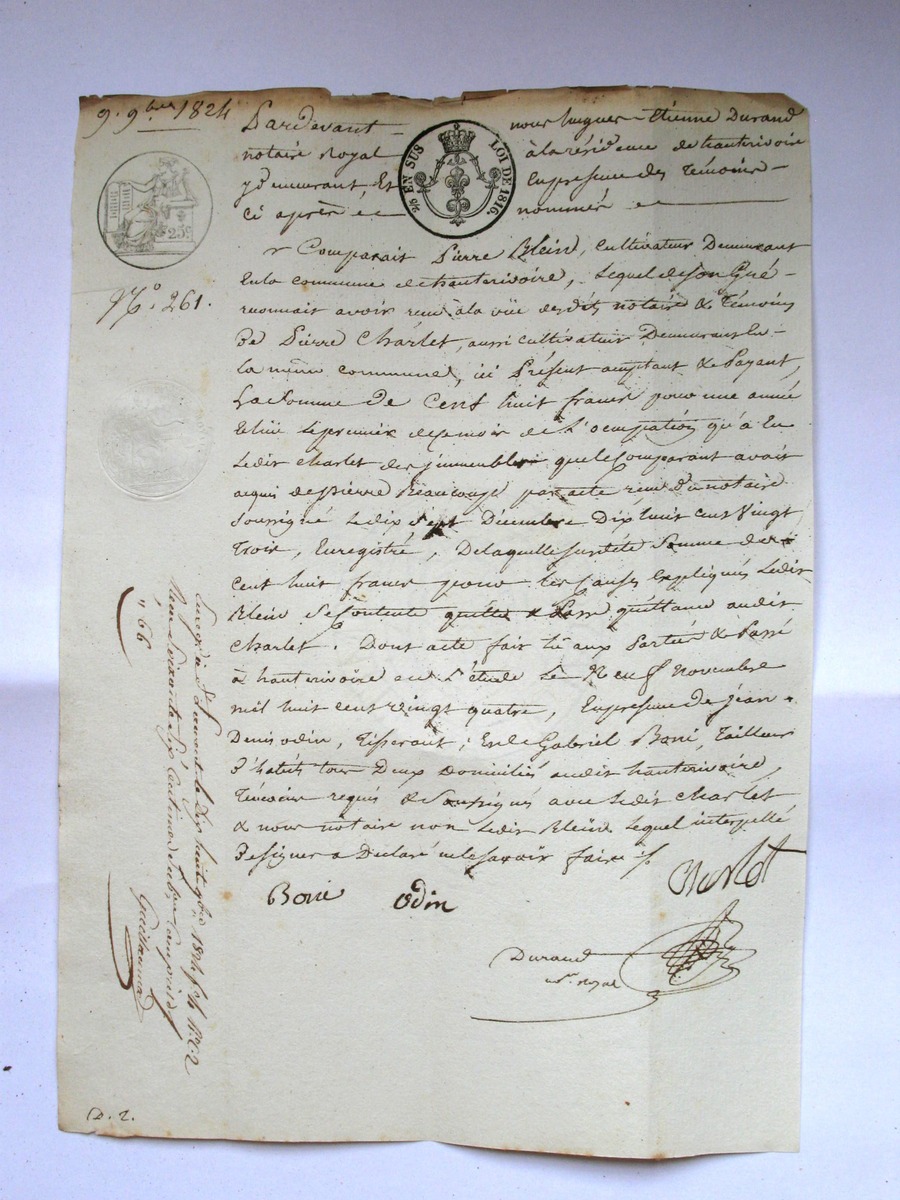 9. 9bre 1824
Pardevant nous hugues-Etienne Durand
notaire Royal à la résidence de hauterivoire
y demeurant, Et En présence des Témoins
Ci après nommés
EN SUS LOI DE 1816.
25c
Comparait Pierre Blein, Cultivateur Demeurant
En la commune de hauterivoire, Lequel de son Gré
reconnait avoir reçu à la vüe des dits notaire & Témoins
De Pierre Charlet, aussi cultivateur Demeurant En
la même commune, ici Présent acceptant & Payant,
La Somme De Cent huit francs pour une année
Echüe le premier de ce mois de L'occupation qu'à Eu
Ledit Charlet des jmmeubles que le Comparant avait
acquis de pierre Beaucoup par acte reçu du notaire
Soussigné Le dix Sept Décembre Dix huit Cent Vingt
Trois, Enregistré, De laquelle Somme de
Cent huit francs pour les Causes Expliquées Ledit
Blein Se Contente quitte & Passe quittance audit
Charlet. Dont acte fait lû aux Parties & Passé
à hauterivoire En L'étude Le Neuf Novembre
mil huit cent vingt quatre, En présence de jean-
Denis odin, Tisserant, Et de Gabriel Boni, Tailleur
D'habits tous Deux domiciliés audit hauterivoire,
Témoins requis & Soussignés avec Ledit Charlet
& nous notaire non Ledit Blein Lequel interpellé
De signer a Déclaré ne le savoir faire
Charlet
Boni Odin
Durand
Nre. royal
No. 261.
" 66
Guillermard
D. 2.